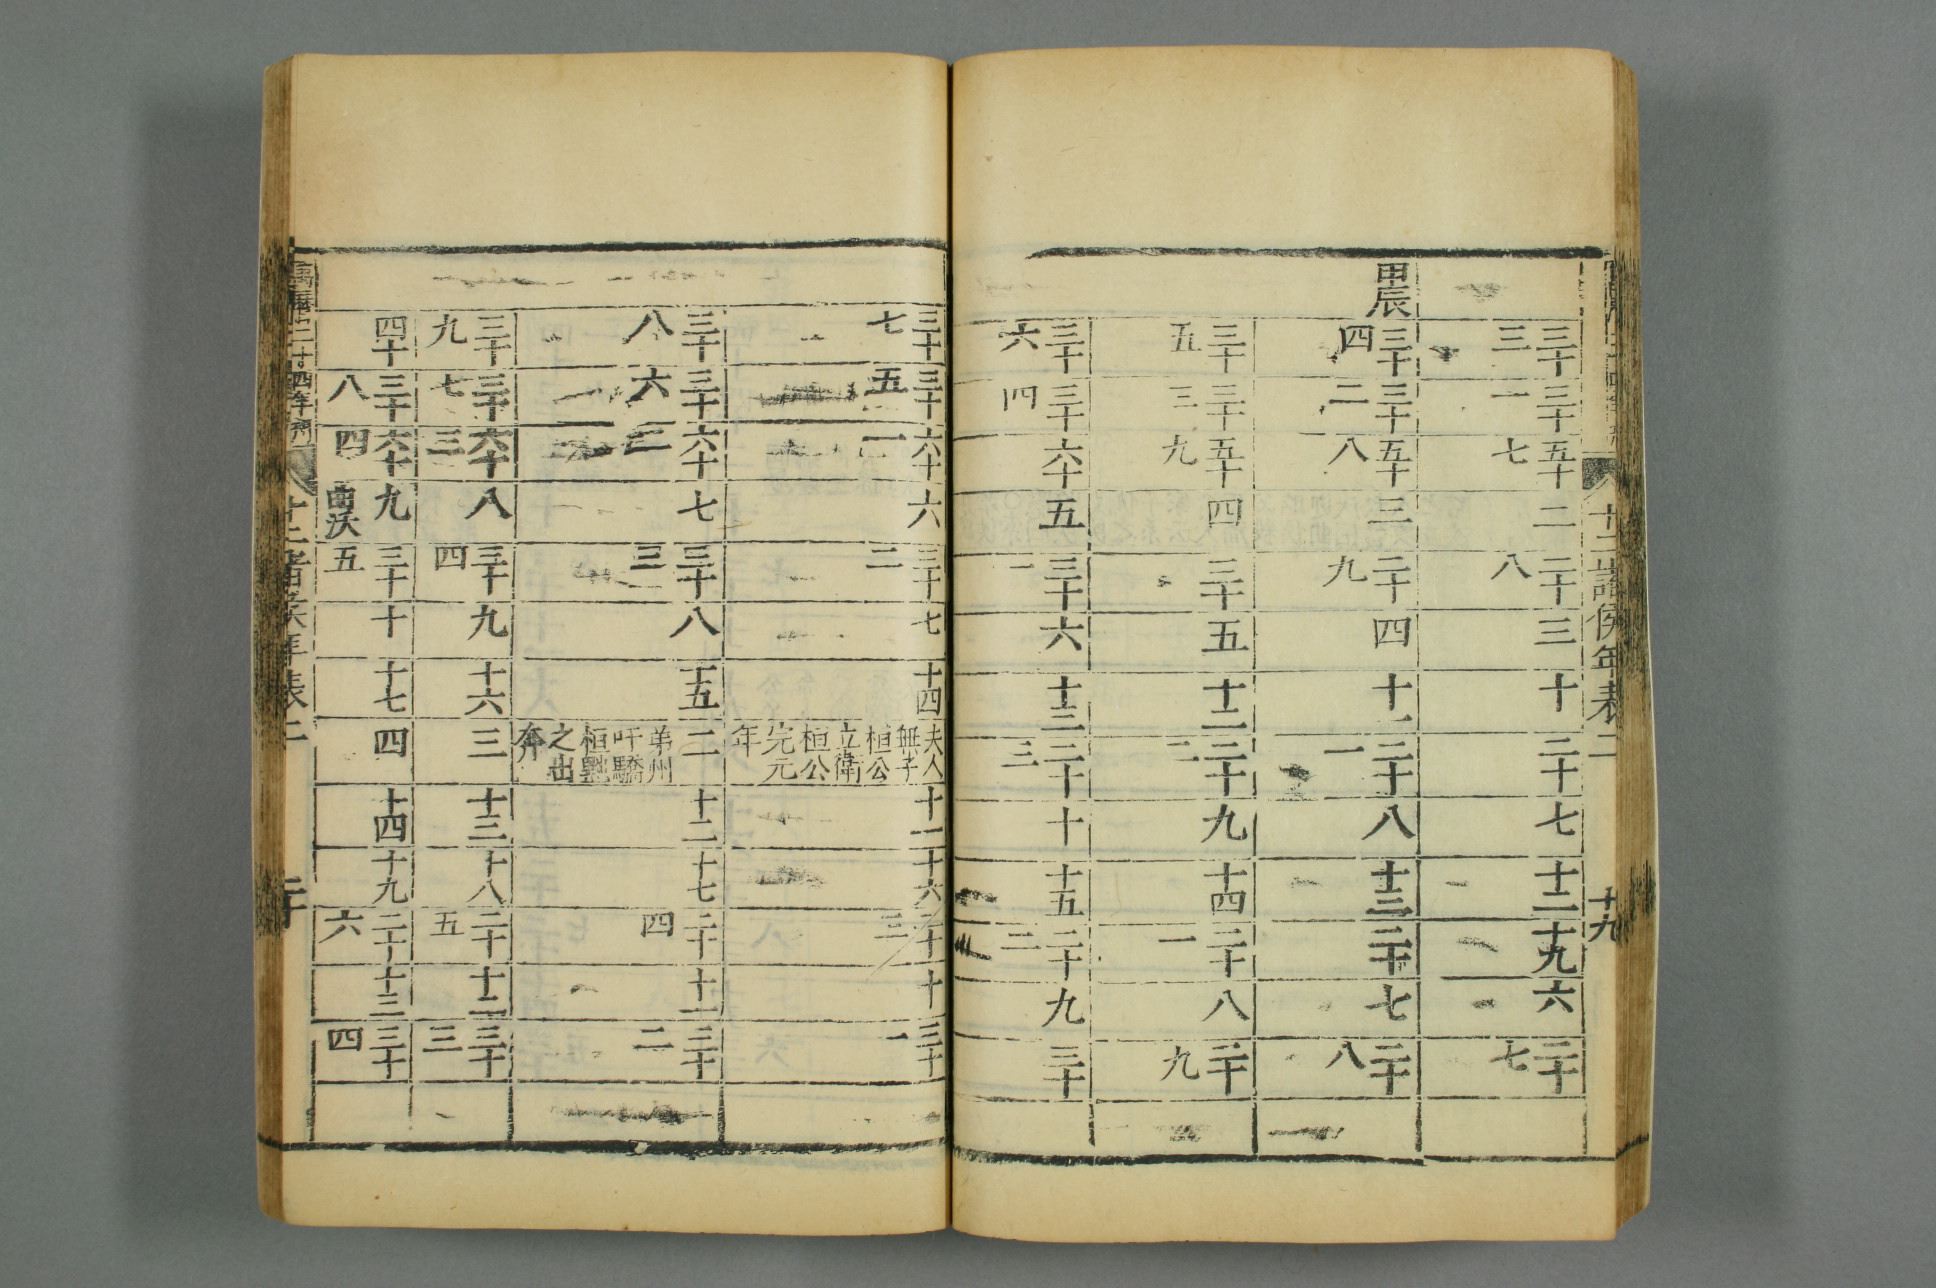 十二諸侯年表二 十九
三十三 三十一 五十七 二 二十八 三 十 二十 七 十二 十九 六 二十七
甲辰 三十四 三十二 五十八 三 二十九 四 十一 二十一 八 十三 二十 七 二十八
三十五 三十三 五十九 四 三十 五 十二 二十二 九 十四 二十一 八 二十九
三十六 三十四 六十 五 三十一 六 十三 二十三 十 十五 二十二 九 三十
三十七 三十五 六十一 六 三十二 七 十四 夫人無子桓公立衛桓公完元年 十一 十六 二十三 十 三十一
三十八 三十六 六十二 七 三十三 八 十五 二弟州吁驕桓黜之出奔 十二 十七 二十四 十一 三十二
三十九 三十七 六十三 八 三十四 九 十六 三 十三 十八 二十五 十二 三十三
四十 三十八 六十四 九曲沃 三十五 十 十七 四 十四 十九 二十六 十三 三十四
萬曆二十四年刊 十二諸侯年表二 二十